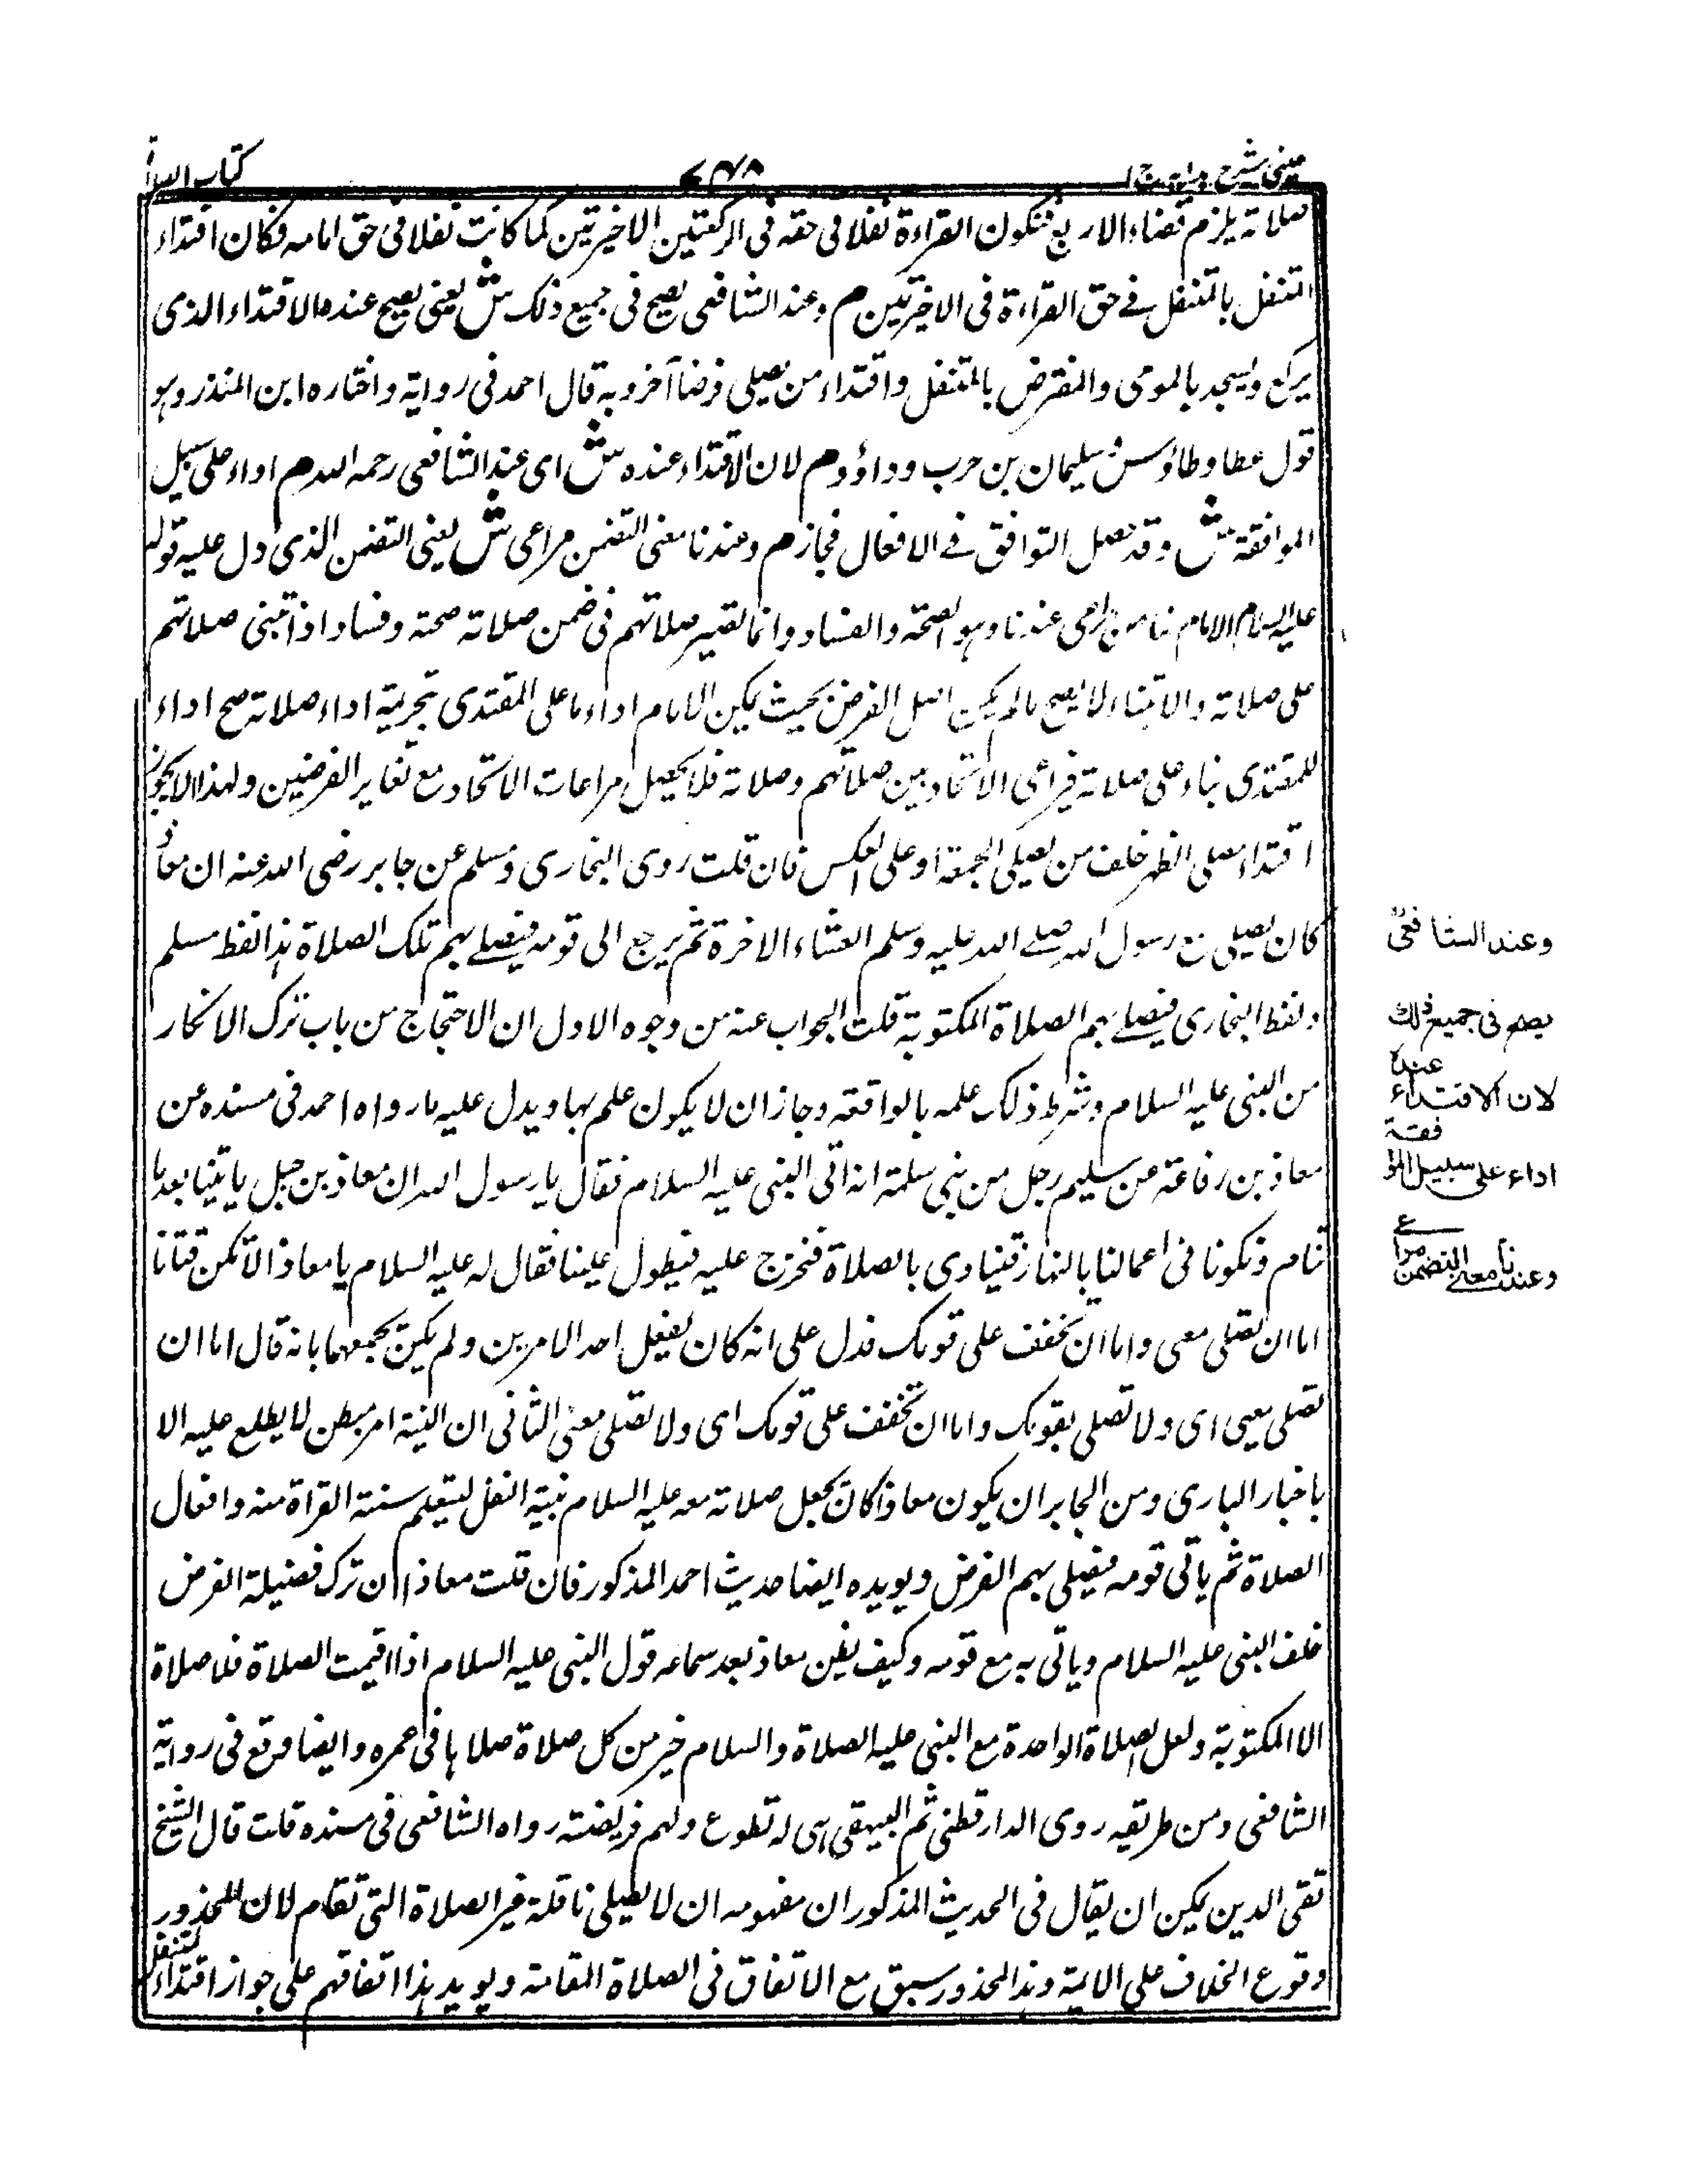 عینی شرح ہدایہ ج ۱
۷۳۸
کتاب الصلاة
صلاته يلزم قضاء الاربع فتكون القراءة نفلا فى حقه فى الركعتين الاخيرتين كما كانت نفلا فى حق امامه فكان اقتداء
المتنفل بالمتنفل فے حق القراءة فى الاخيرتين م وعند الشافعى يصح فى جميع ذلك ش يعنى يصح عنده الاقتداء الذى
يركع ويسجد بالمومى والمفترض بالمتنفل واقتداء من يصلى فرضا آخر وبه قال احمد فى رواية واختاره ابن المنذر وہو
قول عطا وطاؤس وسليمان بن حرب وداؤد م لان الاقتداء عنده ش اى عند الشافعى رحمه الله م اداء على سبيل
الموافقة ش وقد حصل التوافق فے الافعال فجاز م وعندنا معنى التضمن مراعى ش يعنى التضمن الذى دل عليه قوله
عليه السلام الامام ضامن مراعى عندنا وہو الصحة والفساد وانما تصير صلاتهم فى ضمن صلاته صحة وفسادا اذا تبنى صلاتهم
على صلاته والابتناء لا يصح مالم يكن اصل الفرض بحيث يمكن الامام اداء ما على المقتدى بتحريمة اداء صلاته صح اداء
للمقتدى بناء على صلاته فيراعى الاتحاد بين صلاتهم وصلاته فلا يحصل مراعات الاتحاد مع تغاير الفرضين ولهذا لا يجوز
اقتداء مصلى الظهر خلف من يصلى الجمعة او على العكس فان قلت روى البخارى ومسلم عن جابر رضى الله عنه ان معاذ
كان يصلى مع رسول الله صلے الله عليه وسلم العشاء الاخرة ثم يرجع الى قومه فيصلے بهم تلك الصلاة ہذا لفظ مسلم
ولفظ البخارى فيصلے بهم الصلاة المكتوبة قلت الجواب عنه من وجوه الاول ان الاحتجاج من باب ترك الانكار
من النبى عليه السلام وشرط ذلك علمه بالواقعة وجاز ان لا يكون علم بها ويدل عليه ما رواه احمد فى مسنده عن
معاذ بن رفاعة عن سليم رجل من بنى سلمة انه اتى النبى عليه السلام فقال يا رسول الله ان معاذ بن جبل ياتينا بعد ما
ننام ونكونا فى اعمالنا بالنهار فينادى بالصلاة فنخرج عليه فيطول علينا فقال له عليه السلام يا معاذ لا تكن فتانا
اما ان تصلى معى واما ان تخفف على قومك فدل على انه كان يفعل احد الامرين ولم يكن يجمعهما بانه قال اما ان
تصلى معى اى ولا تصلى بقومك واما ان تخفف على قومك اى ولا تصلى معى الثانى ان النية امر مبطن لا يطلع عليه الا
باخبار البارى ومن الجابر ان يكون معاذ كان يجعل صلاته معه عليه السلام بنية النفل ليتعلم سنة القراة منه وافعال
الصلاة ثم ياتى قومه فيصلى بهم الفرض ويويده ايضا حديث احمد المذكور فان قلت معاذ ان ترك فضيلة الفرض
خلف النبى عليه السلام وياتى به مع قومه وكيف يظن معاذ بعد سماعه قول النبى عليه السلام اذا اقيمت الصلاة فلا صلاة
الا المكتوبة ولعل الصلاة الواحدة مع النبى عليه الصلاة والسلام خير من كل صلاة صلاہا فى عمره وايضا وقع فى رواية
الشافعى ومن طريقه روى الدارقطنى ثم البيهقى ہى له تطوع ولهم فريضته رواه الشافعى فى مسنده قلت قال الشيخ
تقى الدين يمكن ان يقال فى الحديث المذكور ان مفهومه ان لا يصلى نافلة غير الصلاة التى تقام لان المحذور
وقوع الخلاف على الايمة وہذا المحذور سبق مع الاتفاق فى الصلاة المقامة ويويد ہذا اتفاقهم على جواز اقتداء المتنفل
وعند الشافعىؒ
يصح فى جميع ذلك
لان الاقتداء عنده
اداء على سبيل الموافقة
وعندنا معنے التضمن مراعے